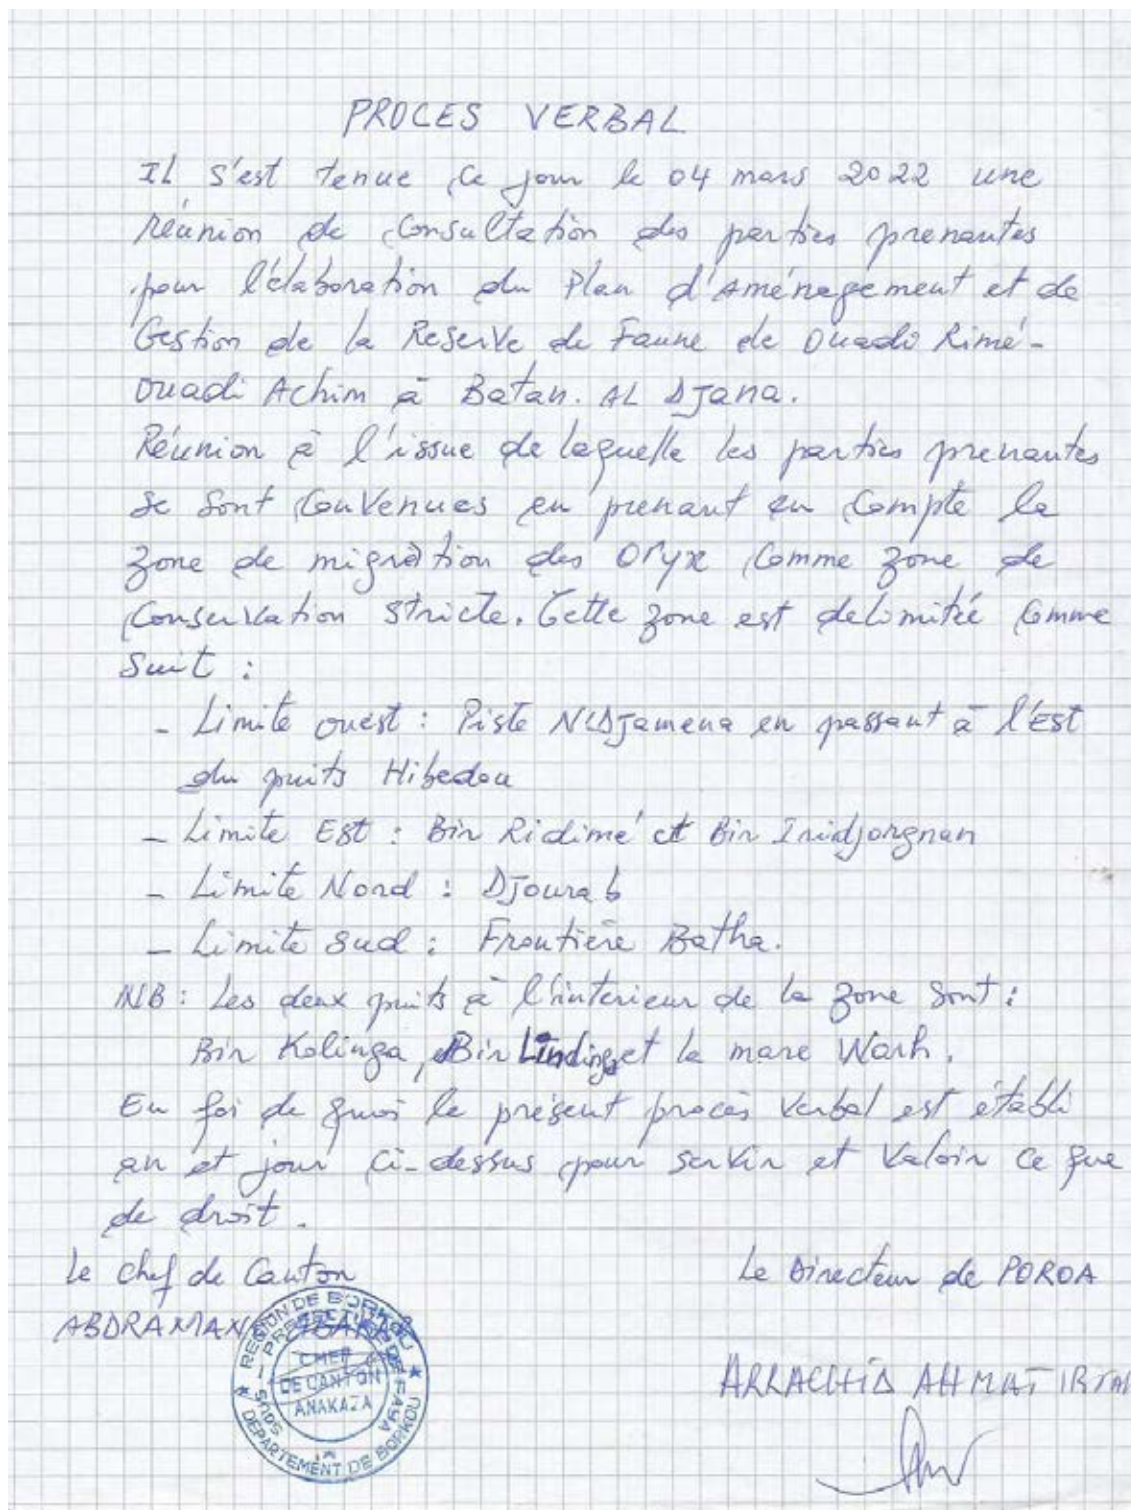 PROCES VERBAL
Il s'est tenue ce jour le 04 mars 2022 une
réunion de consultation des parties prenantes
pour l'élaboration du Plan d'Aménagement et de
Gestion de la Reserve de Faune de Ouadi Rimé-
Ouadi Achim à Batan. AL DJana.
Réunion à l'issue de laquelle les parties prenantes
se sont convenues en prenant en compte la
zone de migration des Oryx comme zone de
conservation stricte. Cette zone est delimitée comme
suit :
- Limite ouest : Piste N'Djamena en passant à l'Est
du puits Hibedou
- Limite Est : Bir Ridimé et Bir Iridjorgnan
- Limite Nord : DJourab
- Limite Sud : Frontière Batha.
NB : Les deux puits à l'interieur de la zone sont :
Bir Kolinga, Bir Lindinga et la mare Warh.
En foi de quoi le présent procès verbal est établi
an et jour ci-dessus pour servir et valoir ce que
de droit.
Le Chef de Canton
Le Directeur de POROA
ABDRAMANE
REGION DE BORKOU
SOUS - PREFECTURE DE FAYA
CHEF
DE CANTON
ANAKAZA
DEPARTEMENT DE BORKOU
ARRACHID AHMAT